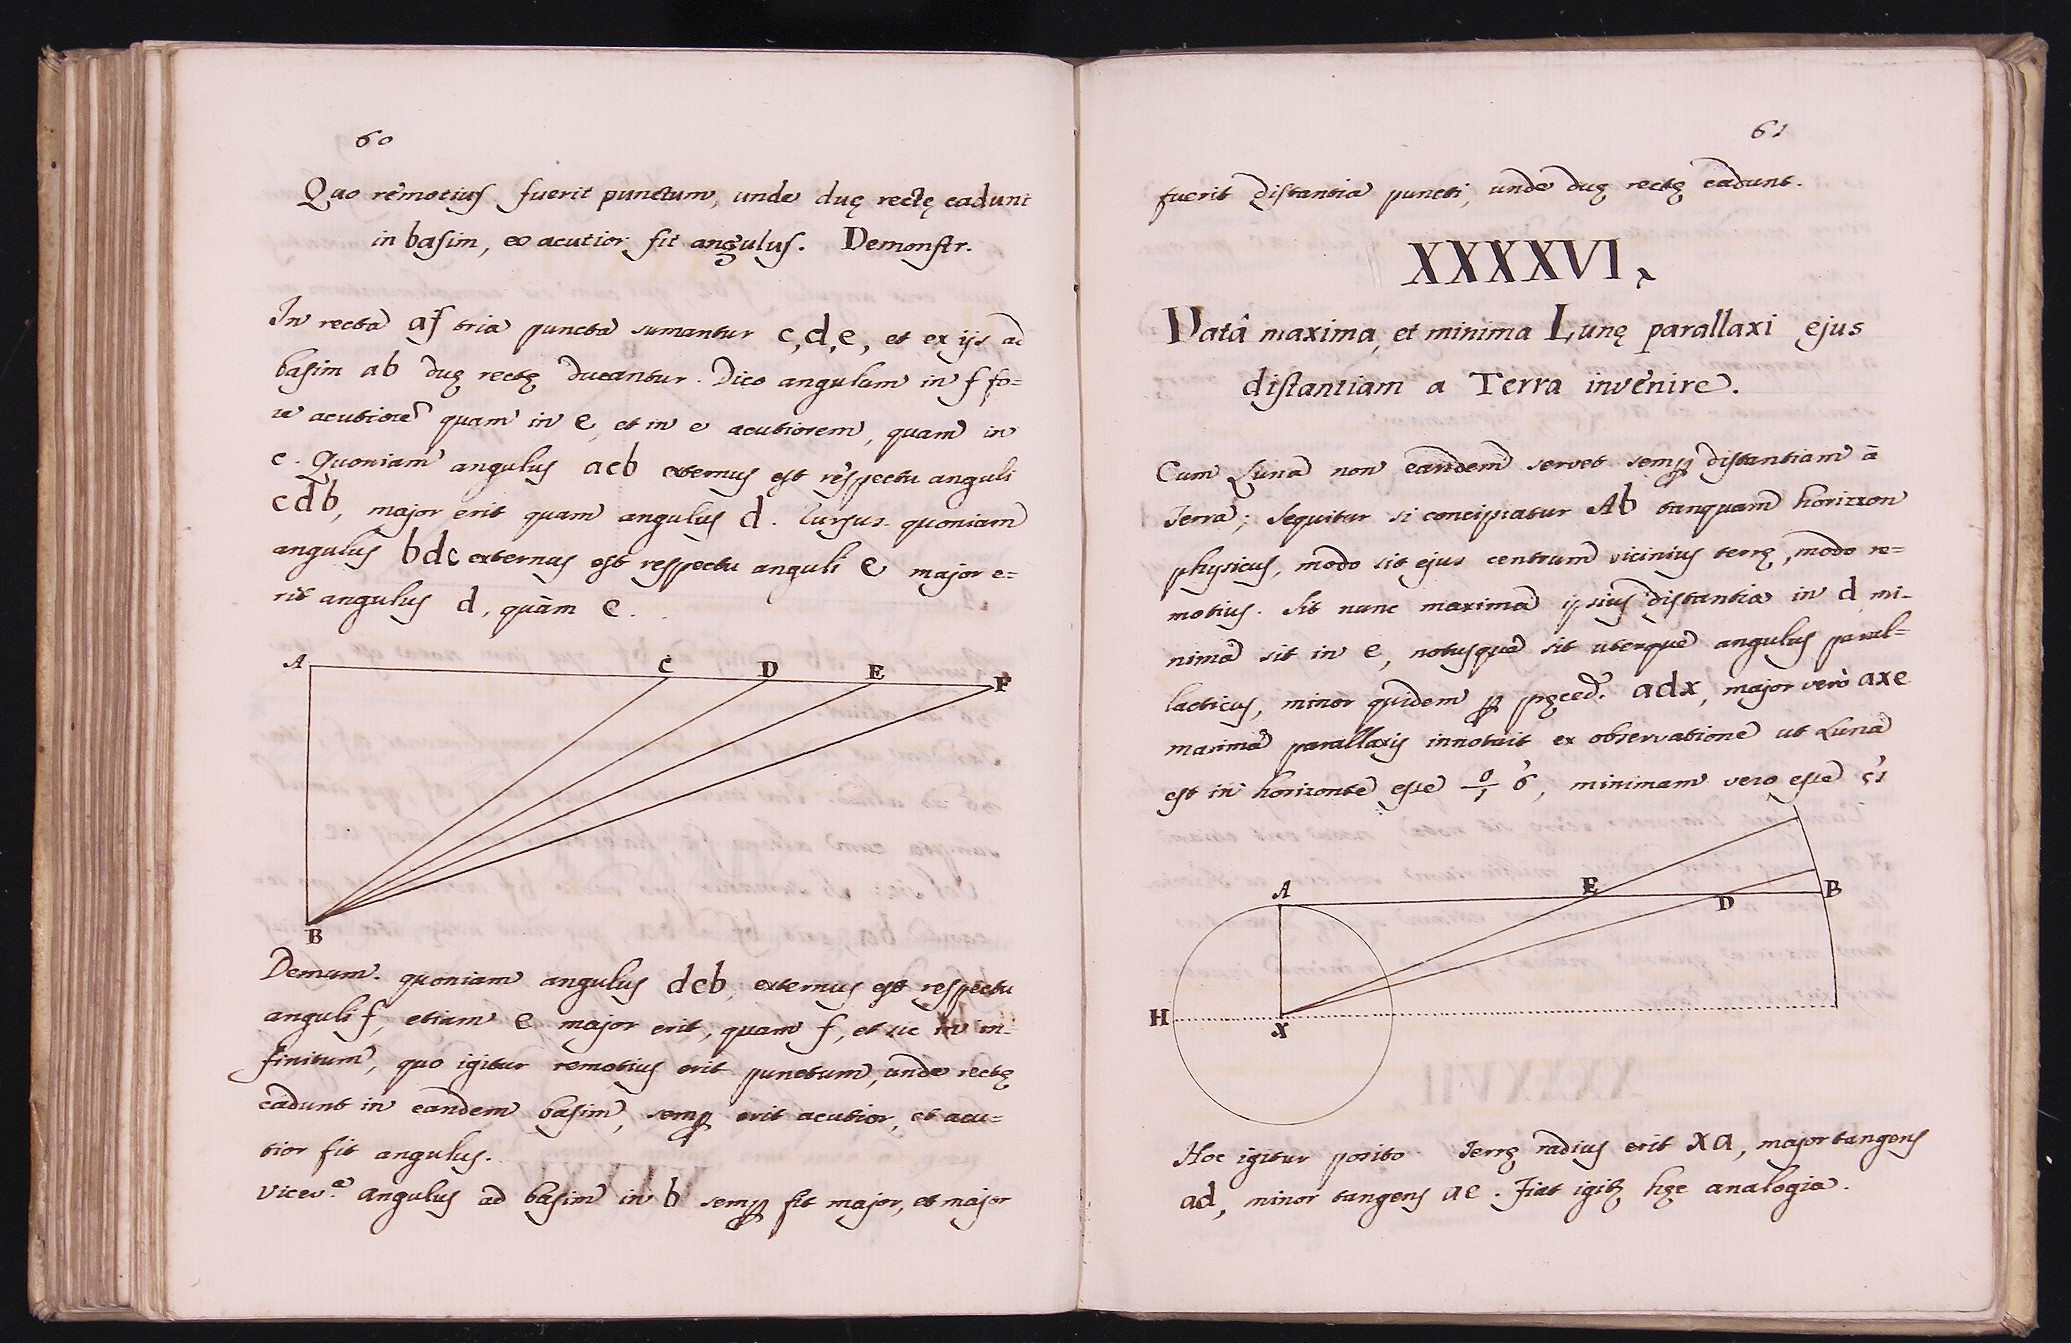 60
Quo remotius fuerit punctum, unde duę rectę cadunt
in basim, eo acutior fit angulus. Demonstr.
In recta af tria puncta sumantur c, d, e, et ex ijs ad
basim ab duę rectę ducantur. Dico angulum in f fo=
re acutiorē quam in e, et in e acutiorem, quam in
c. Quoniam angulus acb externus est respectu anguli
cdb, major erit quam angulus d. Rursus quoniam
angulus bde externus est respectu anguli e major e=
rit angulus d, quàm e.
A C D E F
B
Demum quoniam angulus deb, externus est respectu
anguli f, etiam e major erit, quam f, et sic in in-
finitum, quo igitur remotius erit punctum, unde rectę
cadunt in eandem basim, semp erit acutior, et acu=
tior fit angulus.
Vicev.ª angulus ad basim in b semp fit major, et major
61
fuerit distantia puncti, unde duę rectę cadunt.
XXXXVI
Datâ maxima, et minima Lunę parallaxi ejus
distantiam a Terra invenire.
Cum Luna non eandem servet semp distantiam à
Terra; sequitur si concipiatur Ab tanquam horizzon
physicus, modo sit ejus centrum vicinius terrę, modo re=
motius. Sit nunc maxima ipsius distantia in d mi-
nima sit in e, notusque sit uterque angulus paral=
lacticus, minor quidem p pręced. adx, major verò axe
maxima parallaxis innotuit ex observatione ut Luna
est in horizonte esse 0/1 6', minimam vero esse 51
A E D B
H X
Hoc igitur posito Terrę radius erit xa, major tangens
ad, minor tangens ae. Fiat igitʒ hęc analogia.